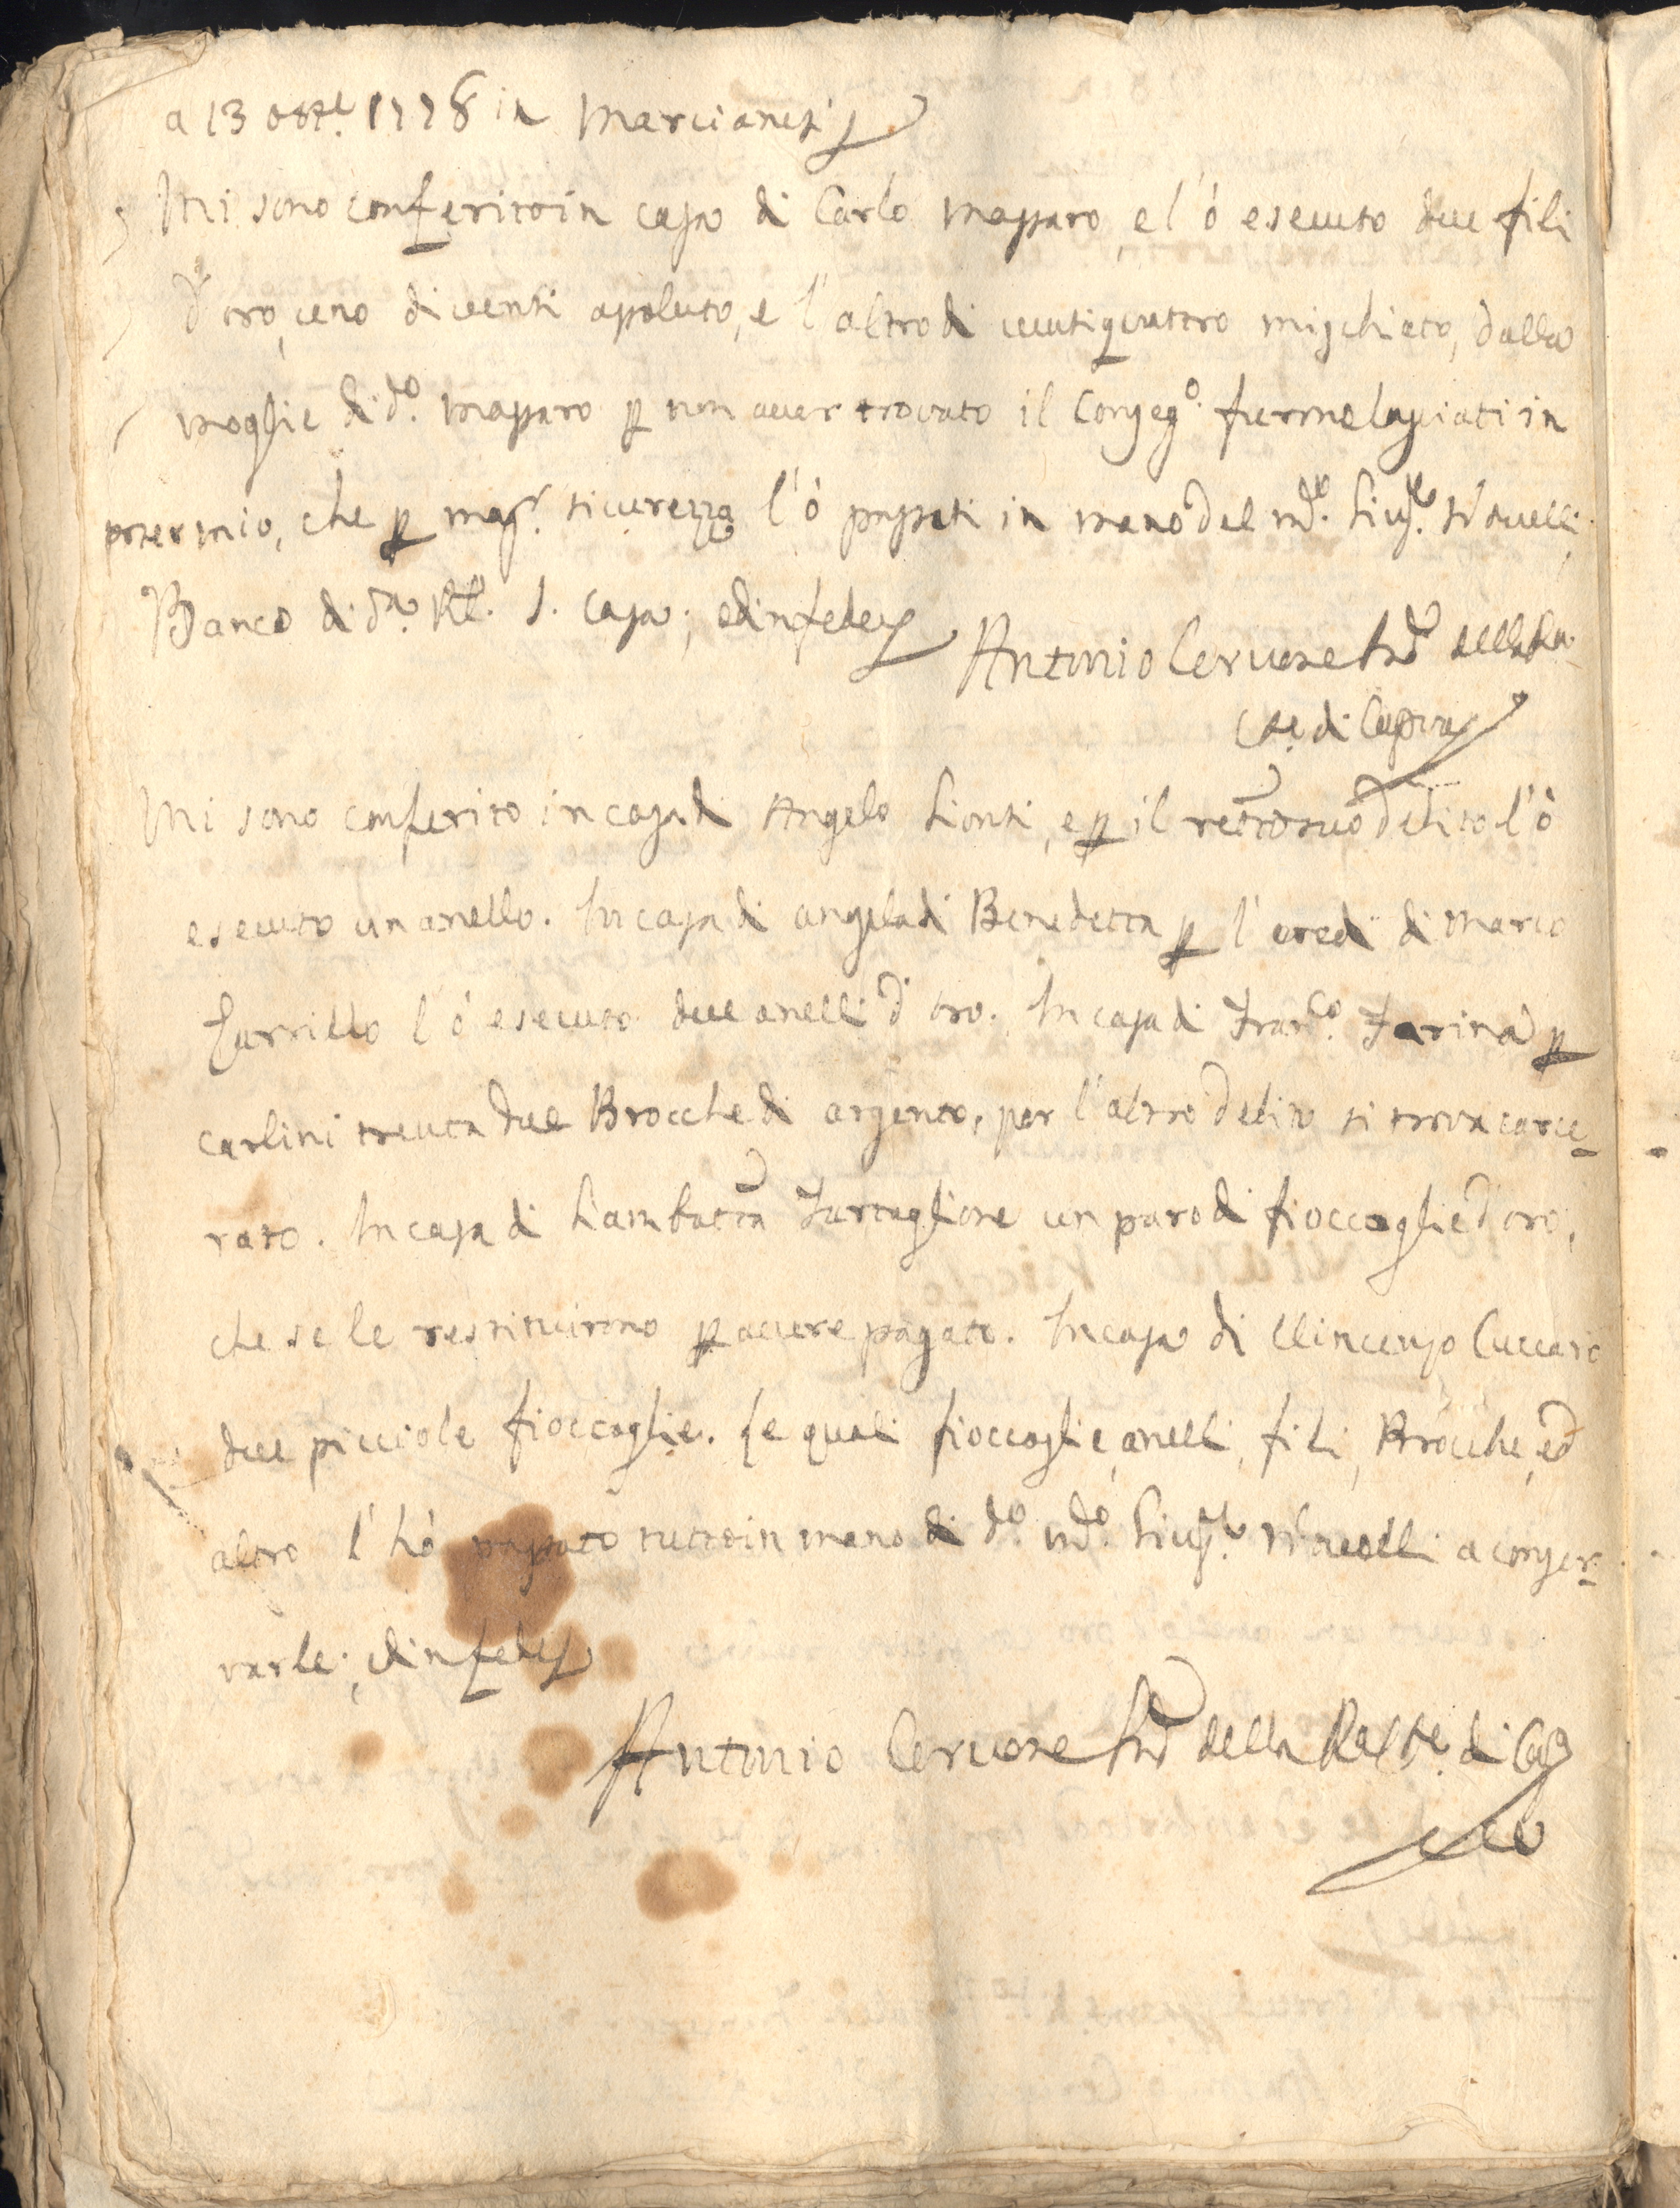 a 13 8bre. 1778 in Marcianesi
Mi sono conferito in casa di Carlo Massaro, e l'ò esecuto due fili
d'oro, uno di venti assoluto, e l'altro di ventiquattro mischiato, dalla
moglie di do. Massaro p non aver trovato il Conseg.o furno lasciati in
poter mio, che p magr. sicurezza l'ò passati in mano del
Banco di da. Rl. S. Casa; ed in fede
Antonio Cervone della
di Capua
Mi sono conferito in casa di Angelo Lionti, e p il suo debito l'ò
esecuto un anello. In casa di angela di Benedetta p l'eredi di Marco
Zarrillo l'ò esecuto due anelli d'oro. In casa di Fran.co Farina p
carlini trenta due Brocche di argento, per l'altro debito si trova carce-
rato. In casa di Tartaglione un paro di fioccaglie d'oro,
che se le restituirono p avere pagato. In casa di Vincenzo Cuccaro
due picciole fioccaglie. Le quali fioccaglie, anelli, fili, Brocche, ed
altro l'hò passato tutto in mano di do. Novelli a conser-
varle; ed in fede
Antonio Cervone della di Cap
ua